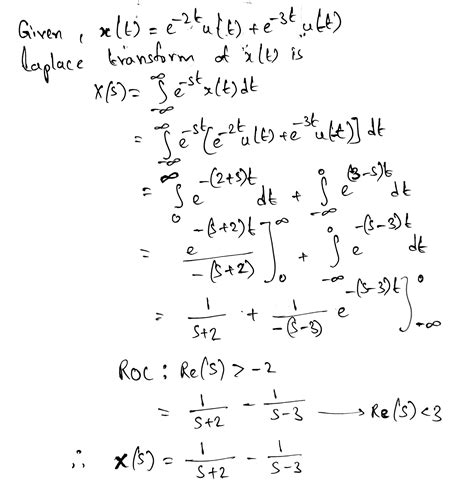 Given, x(t) = e^{-2t} u(t) + e^{-3t} u(-t)
Laplace transform of x(t) is
X(s) = ∫_{-∞}^{∞} e^{-st} x(t) dt
= ∫_{-∞}^{∞} e^{-st} [e^{-2t} u(t) + e^{-3t} u(-t)] dt
= ∫_{0}^{∞} e^{-(2+s)t} dt + ∫_{-∞}^{0} e^{(3-s)t} dt
= e^{-(s+2)t} / -(s+2) ]_{0}^{∞} + ∫_{-∞}^{0} e^{-(s-3)t} dt
= 1/(s+2) + 1/-(s-3) e^{-(s-3)t} ]_{-∞}^{0}
ROC : Re(s) > -2
= 1/(s+2) - 1/(s-3) → Re(s) < 3
∴ X(s) = 1/(s+2) - 1/(s-3)